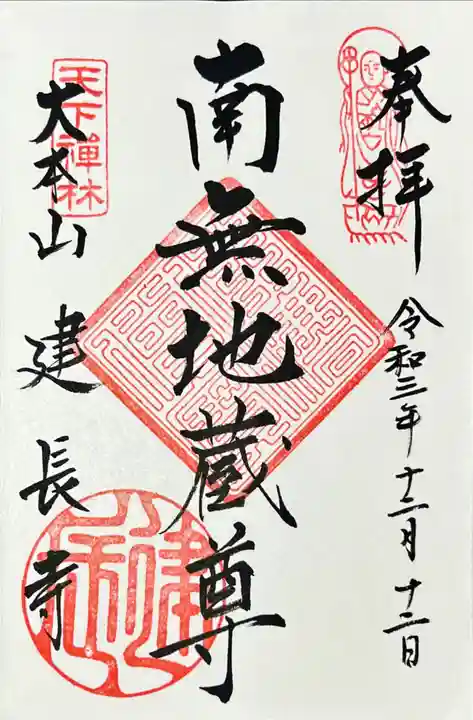 奉拝
令和三年十二月十二日
南無地蔵尊
天下禅林
大本山建長寺